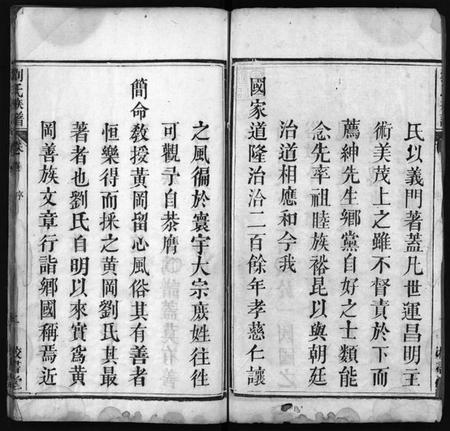 氏以義門著蓋凡世運昌明主
術美茂上之雖不督責於下而
薦紳先生鄉黨自好之士類能
念先率祖睦族裕昆以與朝廷
治道相應和今我
國家道隆治洽二百餘年孝慈仁讓
之風徧於寰宇大宗庶姓往往
可觀予自茶膺
簡命敎授黃岡留心風俗其有善者
恒樂得而採之黃岡劉氏其最
著者也劉氏自明以來實爲黃
岡善族文章行詣鄉國稱焉近
劉氏族譜 卷 序